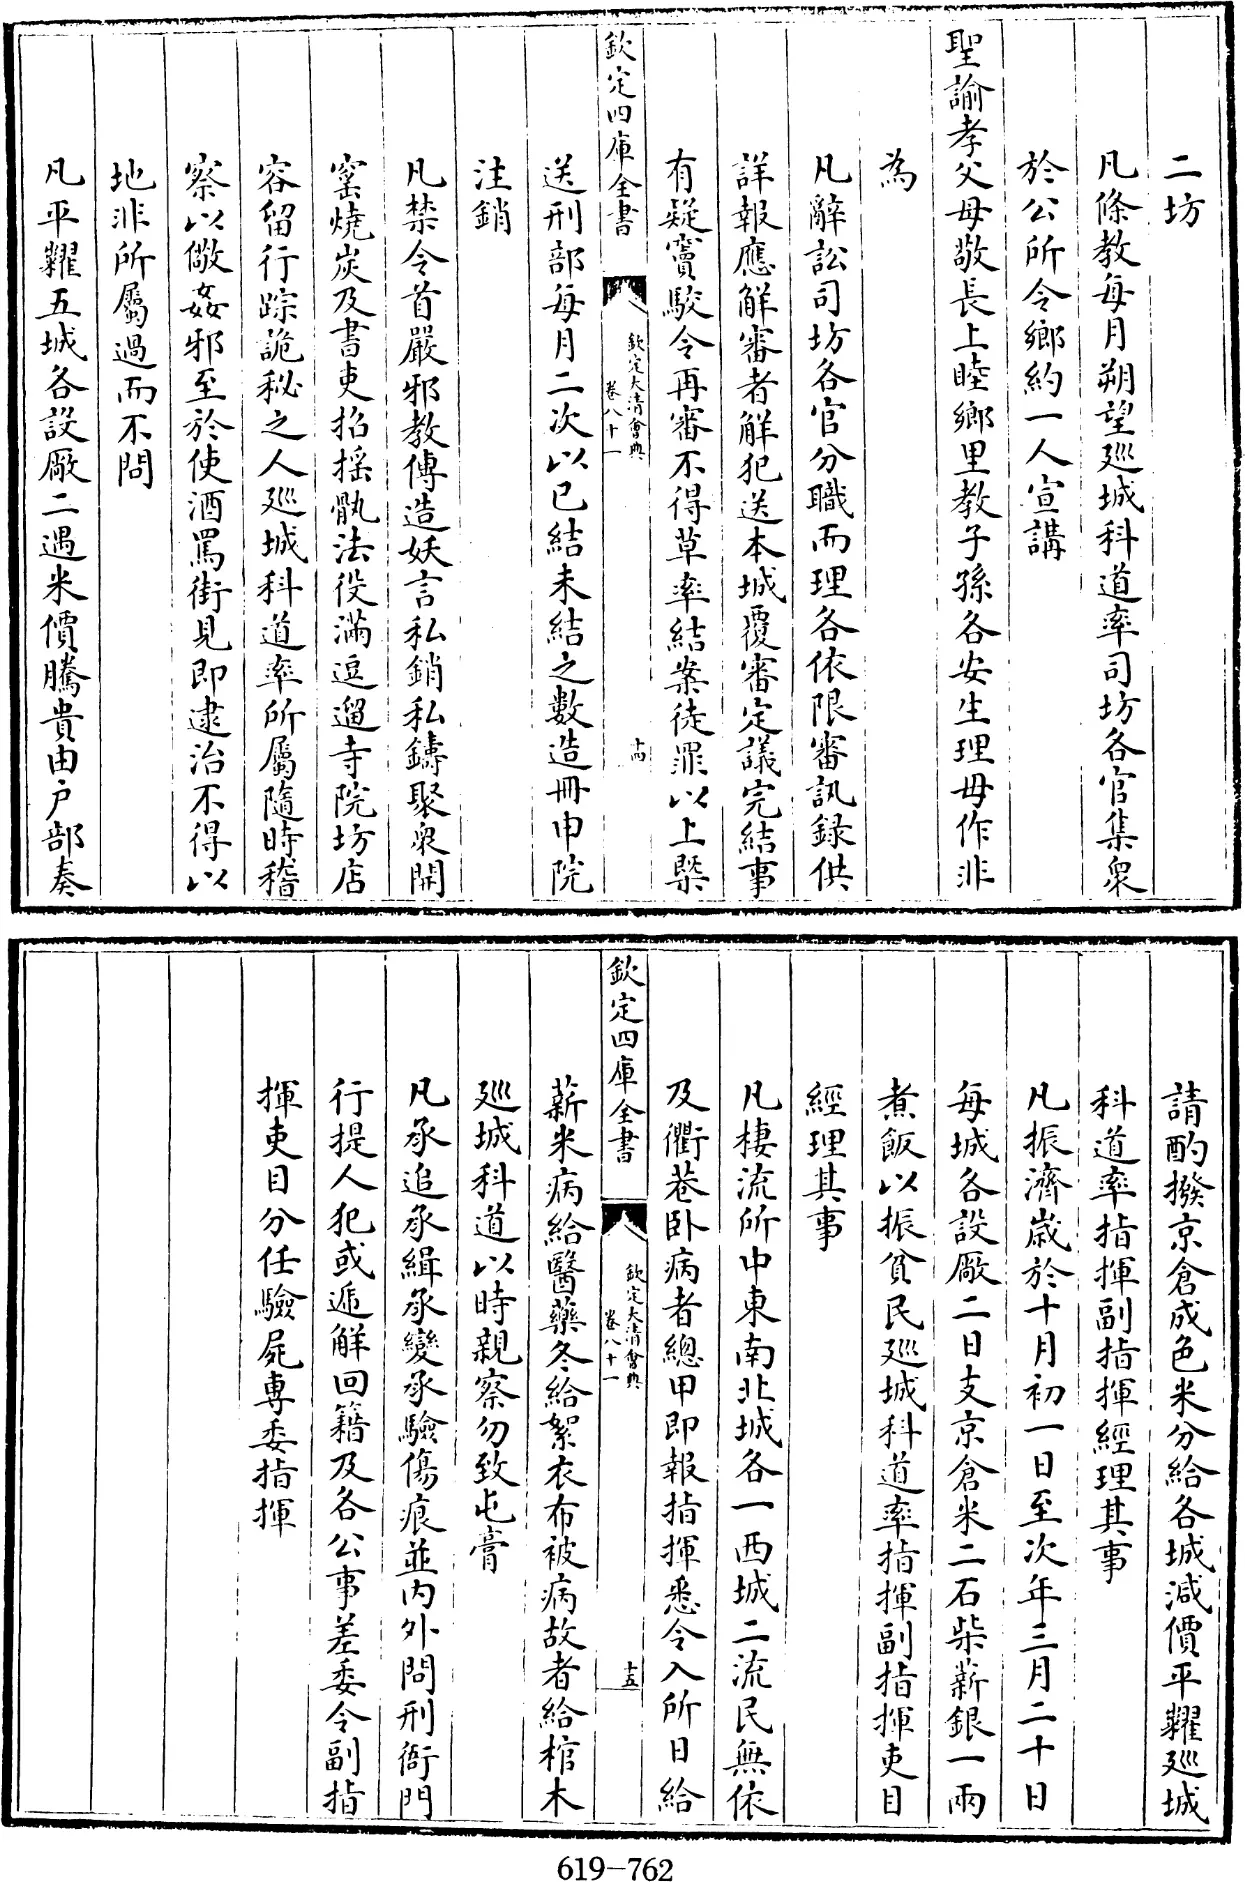 二坊
凡條教每月朔望廵城科道率司坊各官集衆
於公所令鄉約一人宣講
聖諭孝父母敬長上睦鄉里教子孫各安生理毋作非
為
凡辭訟司坊各官分職而理各依限審訊録供
詳報應解審者解犯送本城覆審定議完結事
有疑竇駁令再審不得草率結案徒罪以上槩
欽定四庫全書
欽定大清會典
卷八十一
十四
送刑部每月二次以已結未結之數造冊申院
注銷
凡禁令首嚴邪教傳造妖言私銷私鑄聚衆開
窰燒炭及書吏招揺骫法役滿逗遛寺院坊店
容留行踪詭秘之人廵城科道率所屬隨時稽
察以儆姦邪至於使酒罵街見即逮治不得以
地非所屬過而不問
凡平糶五城各設廠二遇米價騰貴由户部奏
請酌撥京倉成色米分給各城減價平糶廵城
科道率指揮副指揮經理其事
凡振濟歳於十月初一日至次年三月二十日
每城各設廠二日支京倉米二石柴薪銀一兩
煮飯以振貧民廵城科道率指揮副指揮吏目
經理其事
凡棲流所中東南北城各一西城二流民無依
及衢巷卧病者總甲即報指揮悉令入所日給
欽定四庫全書
欽定大清會典
卷八十一
十五
薪米病給醫藥冬給絮衣布被病故者給棺木
廵城科道以時親察勿致屯膏
凡承追承緝承變承驗傷痕並内外問刑衙門
行提人犯或遞解回籍及各公事差委令副指
揮吏目分任驗屍專委指揮
619-762